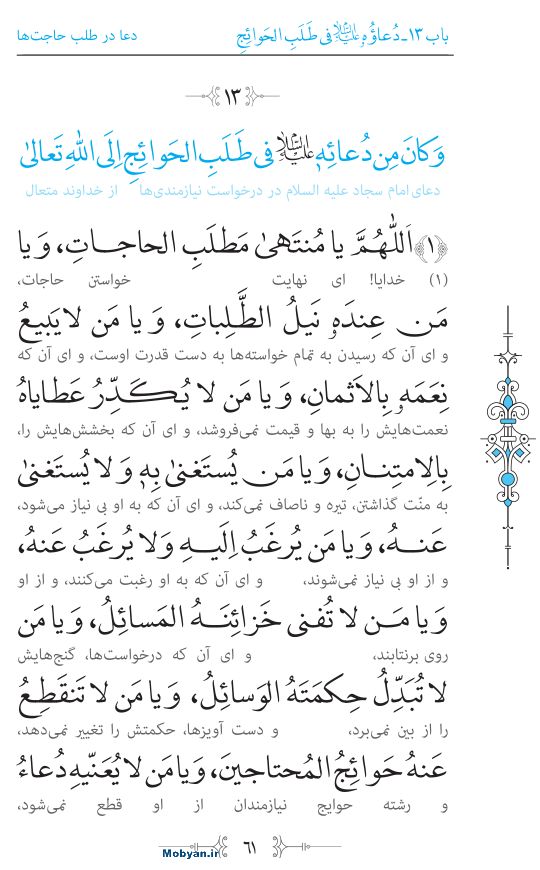 باب ١٣ـ دُعاؤُهُ عليه السلام في طَلَبِ الحَوائِجِ دعا در طلب حاجت‌ها
١٣
وَكانَ مِن دُعائِهِ عليه السلام في طَلَبِ الحَوائِجِ إِلَى اللهِ تَعالىٰ
دعای امام سجاد علیه السلام در درخواست نیازمندی‌ها از خداوند متعال
﴿١﴾ اَللّٰهُمَّ يا مُنتَهىٰ مَطلَبِ الحاجاتِ، وَ يا
(۱) خدایا! ای نهایت خواستن حاجات،
مَن عِندَهُ نَيلُ الطَّلِباتِ، وَ يا مَن لا يَبيعُ
و ای آن که رسیدن به تمام خواسته‌ها به دست قدرت اوست، و ای آن که
نِعَمَهُ بِالاَثمانِ، وَ يا مَن لا يُكَدِّرُ عَطاياهُ
نعمت‌هایش را به بها و قیمت نمی‌فروشد، و ای آن که بخشش‌هایش را،
بِالامتِنانِ، وَ يا مَن يُستَغنىٰ بِهِ وَ لا يُستَغنىٰ
به منّت گذاشتن، تیره و ناصاف نمی‌کند، و ای آن که به او بی نیاز می‌شود،
عَنهُ، وَ يا مَن يُرغَبُ اِلَيهِ وَ لا يُرغَبُ عَنهُ،
و از او بی نیاز نمی‌شوند، و ای آن که به او رغبت می‌کنند، و از او
وَ يا مَن لا تُفنى خَزائِنَهُ المَسائِلُ، وَ يا مَن
روی برنتابند، و ای آن که درخواست‌ها، گنج‌هایش
لا تُبَدِّلُ حِكمَتَهُ الوَسائِلُ، وَ يا مَن لا تَنقَطِعُ
را از بین نمی‌برد، و دست آویزها، حکمتش را تغییر نمی‌دهد،
عَنهُ حَوائِجُ المُحتاجينَ، وَ يا مَن لا يُعَنّيهِ دُعاءُ
و رشته حوایج نیازمندان از او قطع نمی‌شود،
٦١
Mobyan.ir